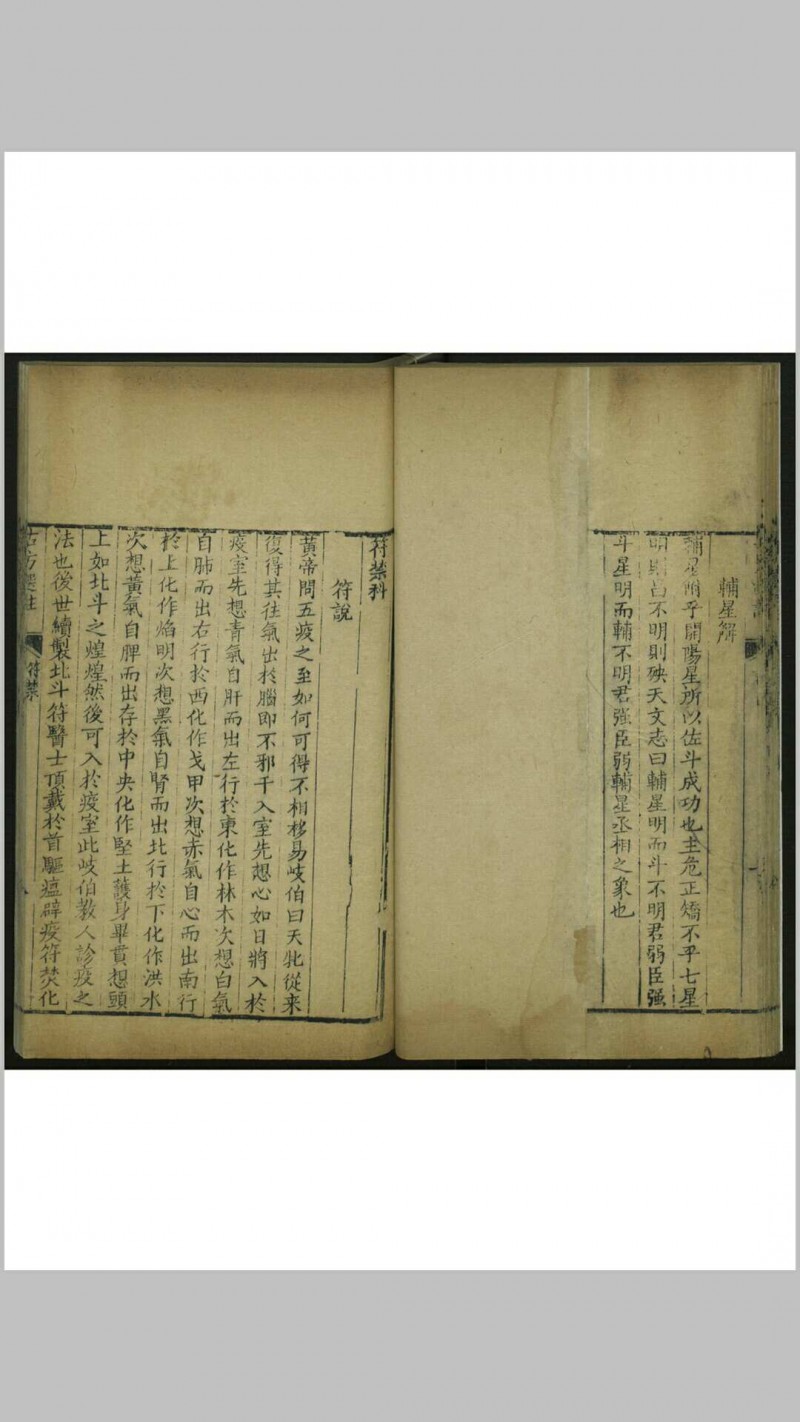 輔星解
輔星附乎開陽星所以佐斗成功也主危正矯不平七星
明則吉不明則殃天文志曰輔星明而斗不明君弱臣强
斗星明而輔不明君强臣弱輔星丞相之象也
符禁科
符說
黃帝問五疫之至如何可得不相移易岐伯曰天牝從来
復得其往氣出於腦即不邪干入室先想心如日將入於
疫室先想青氣自肝而出左行於東化作林木次想白氣
自肺而出右行於西化作戈甲次想赤氣自心而出南行
於上化作焰明次想黑氣自腎而出北行於下化作洪水
次想黃氣自脾而出存於中央化作堅土護身畢貫想頭
上如北斗之煌煌然後可入於疫室此岐伯教人診疫之
法也後世續製北斗符醫士頂戴於首驅瘟辟疫符焚化
古方選註
符禁